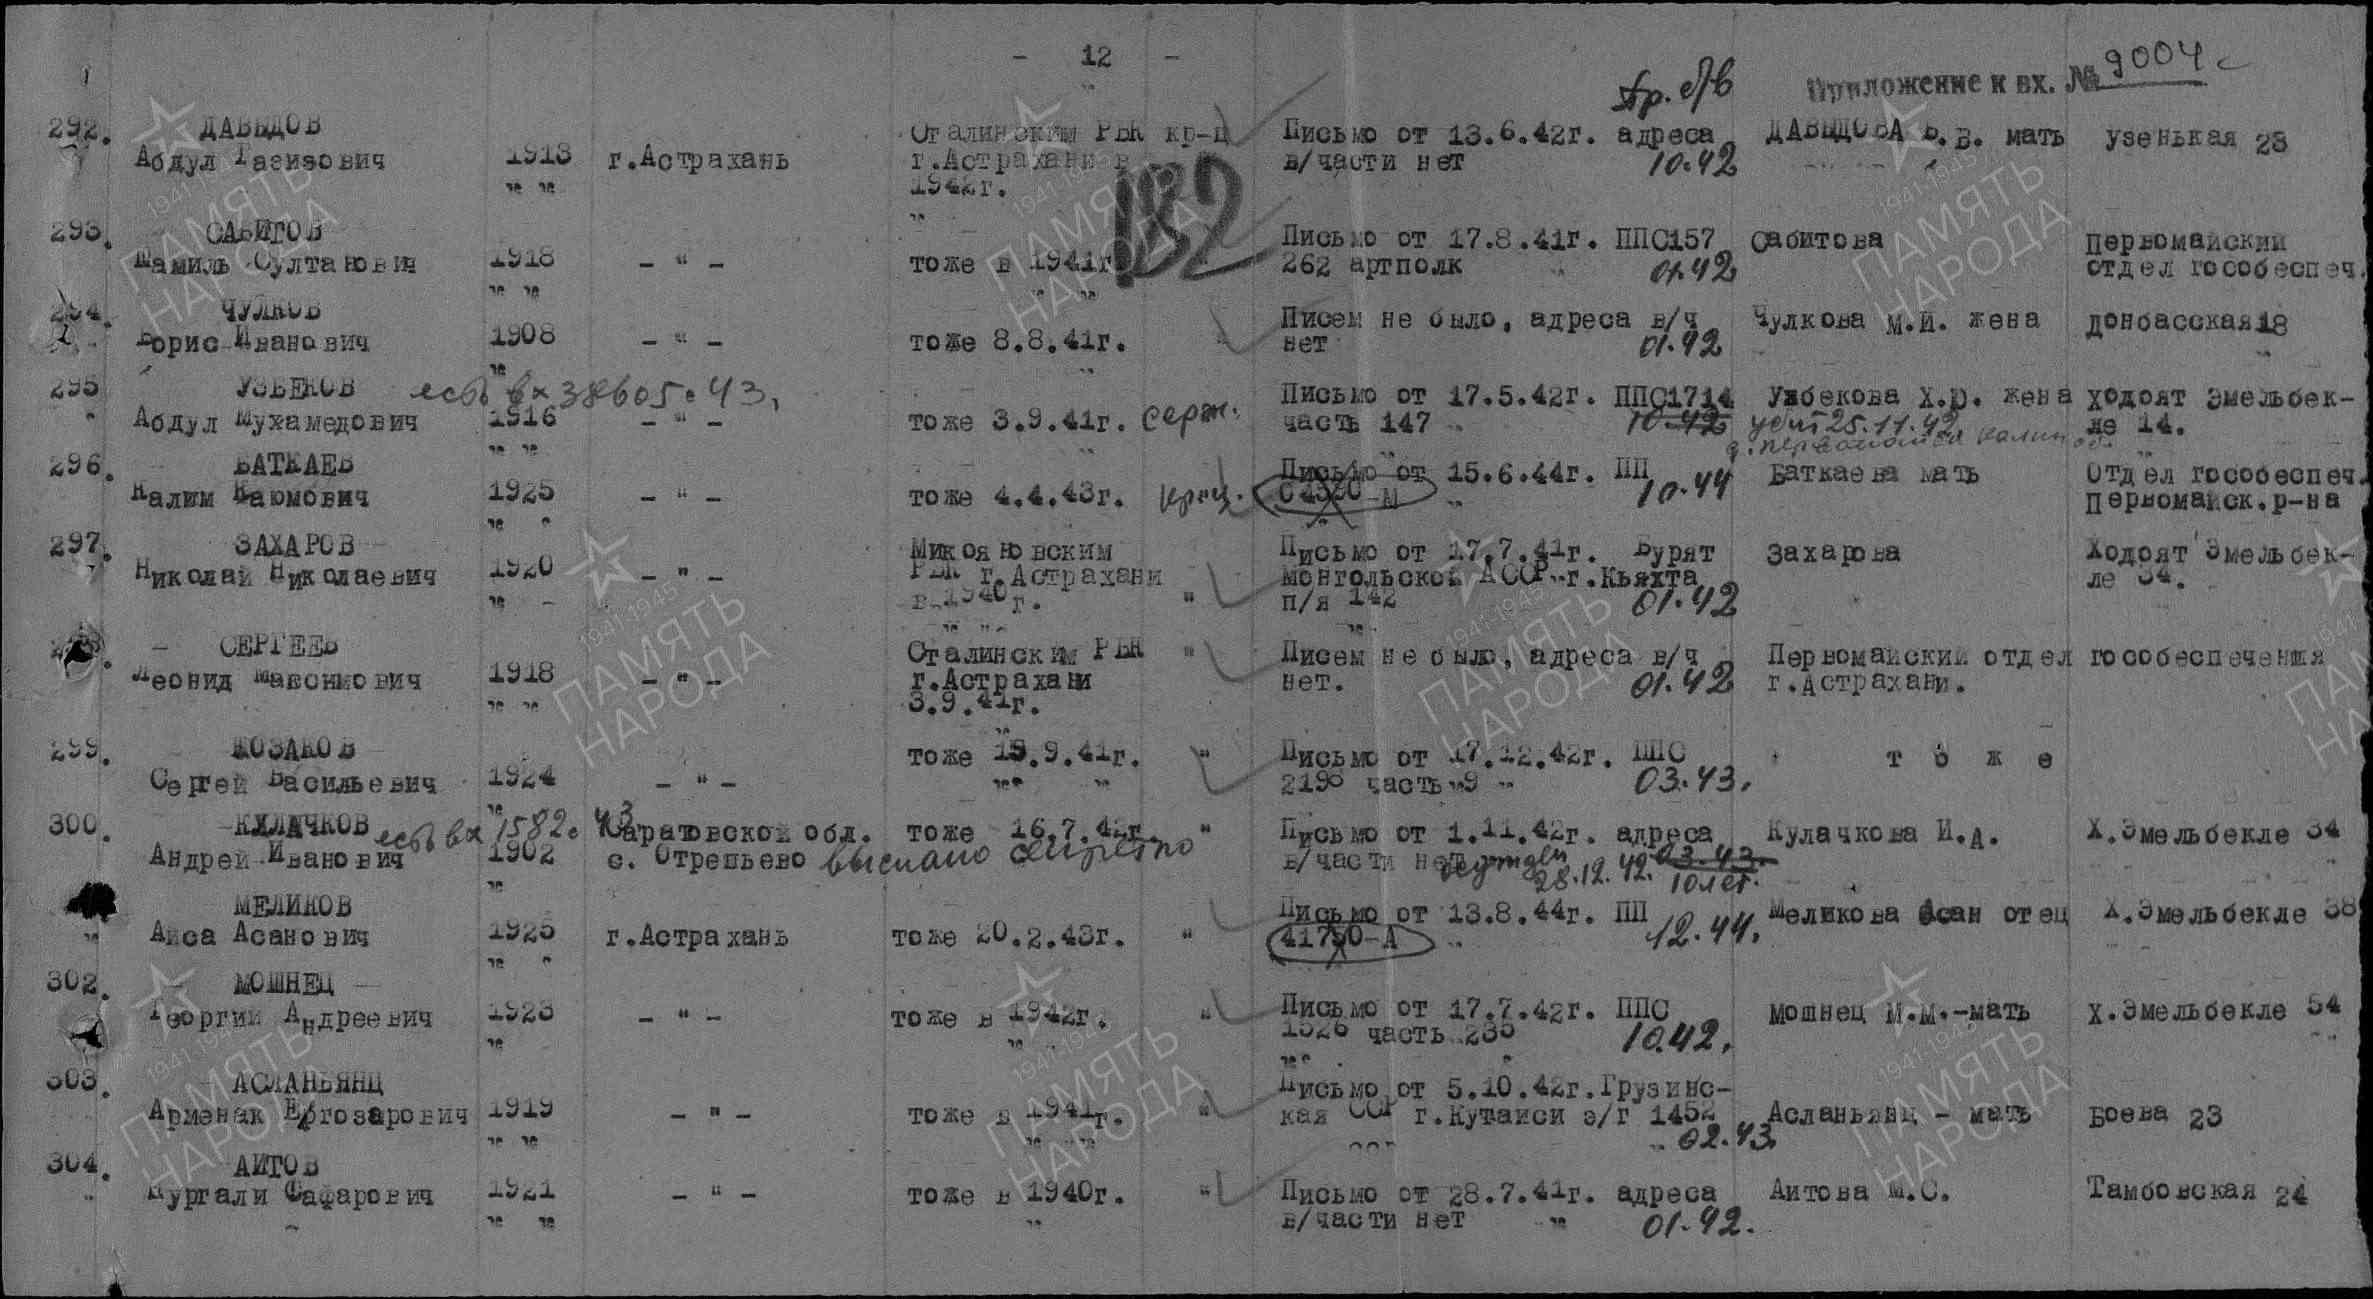 - 12 -
Приложение к вх. № 9004с
292. ДАВЫДОВ
Абдул Газизович 1913 г.Астрахань Сталинским РВК кр-ц Письмо от 13.6.42г. адреса ДАВЫДОВА мать узенькая 23
г.Астрахани в в/части нет 10.42
1942г.
132
293. САБИТОВ
Шамиль Султанович 1918 - " - тоже в 1941г. Письмо от 17.8.41г. ППС157 Сабитова Первомайский
262 артполк 01.42 отдел гособеспеч.
294. ЧУЛКОВ
Борис Иванович 1908 - " - тоже 8.8.41г. " Писем не было, адреса в/ч Чулкова М.И. жена Донбасская 18
нет 01.42
295 УЗБЕКОВ есть вх 38605с 43.
Абдул Мухамедович 1916 - " - тоже 3.9.41г. серж. Письмо от 17.5.42г. ППС1714 Узбекова Х.Ю. жена Ходоят Эмельбек-
часть 147 10.42 убит 25.11.42 ле 14.
296. БАТКАЕВ
Налим Каюмович 1925 - " - тоже 4.4.43г. кр-ц. Письмо от 15.6.44г. ПП Баткаева мать Отдел гособеспеч.
-М 10.44 Первомайск.р-на
297. ЗАХАРОВ
Николай Николаевич 1920 - " - Микояновским Письмо от 17.7.41г. Бурят Захарова Ходоят Эмельбек-
РВК г.Астрахани монгольской АССР г.Кьяхта ле 34.
в 1940г. " п/я 142 01.42
СЕРГЕЕВ
Леонид Максимович 1918 - " - Сталинским РВК " Писем не было, адреса в/ч Первомайский отдел гособеспечения
г.Астрахани нет. 01.42 г.Астрахани.
3.9.41г.
299. КОЗАКОВ
Сергей Васильевич 1924 - " - тоже 15.9.41г. " Письмо от 17.12.42г. ППС т о ж е
2198 часть 9 03.43.
300. КУЛАЧКОВ есть вх 1582с 43
Андрей Иванович 1902 Саратовской обл. тоже 16.7.42г. " Письмо от 1.11.42г. адреса Кулачкова И.А. Х.Эмельбекле 34
с. Отрепьево выслано в/части нет осужден 28.12.42. 03.43.
10 лет.
МЕЛИКОВ
Аиса Асанович 1925 г.Астрахань тоже 20.2.43г. " Письмо от 13.8.44г. ПП Меликова Асан отец Х.Эмельбекле 38
41750-А 12.44.
302. МОШНЕЦ
Георгий Андреевич 1923 - " - тоже в 1942г. " Письмо от 17.7.42г. ППС Мошнец М.М.-мать Х.Эмельбекле 54
1526 часть 235 10.42.
303. АСЛАНЬЯНЦ
Арменак Ергозарович 1919 - " - тоже в 1941г. " Письмо от 5.10.42г.Грузинс- Асланьянц - мать Боева 23
кая ССР г.Кутаиси э/г 1452
02.43
304. АИТОВ
Нургали Фафарович 1921 - " - тоже в 1940г. " Письмо от 28.7.41г. адреса Аитова М.С. Тамбовская 24
в/части нет 01.42.
1941-1945
ПАМЯТЬ
НАРОДА